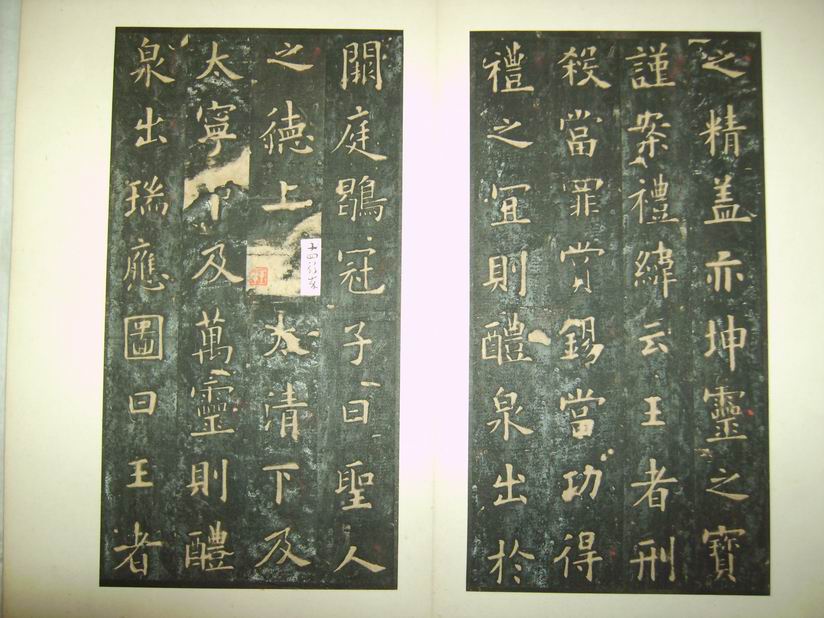 之精盖亦坤靈之寶
謹案禮緯云王者刑
殺當罪賞錫當功得
禮之宜則醴泉出於
闕庭鶡冠子曰聖人
之德上太清下及
太寧中及萬靈則醴
泉出瑞應圖曰王者